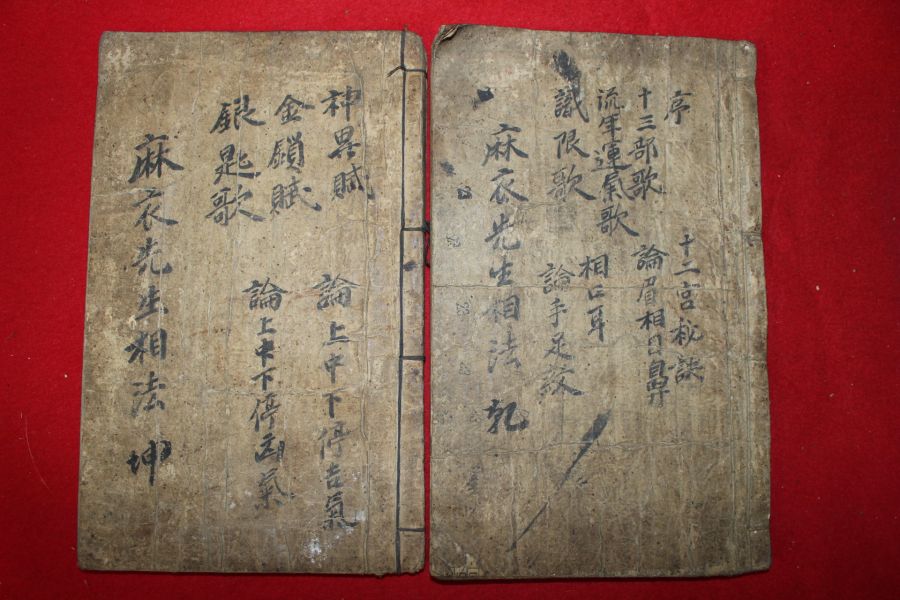 序
十二宮秘訣
十三部歌
論眉相目鼻
流年運氣歌
相口耳
識限歌
論手足紋
麻衣先生相法 乾
神異賦
論上中下停吉氣
金鎖賦
論上中下停氣
銀匙歌
麻衣先生相法 坤